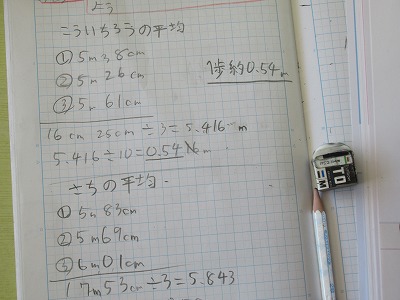 どう
こういちろうの平均
①5m38cm
②5m26cm
③5m61cm
1歩約0.54m
16cm25cm÷3=5.416…m
5.416÷10=0.54m
さちの平均
①5m83cm
②5m69cm
③6m01cm
17m53cm÷3=5.843